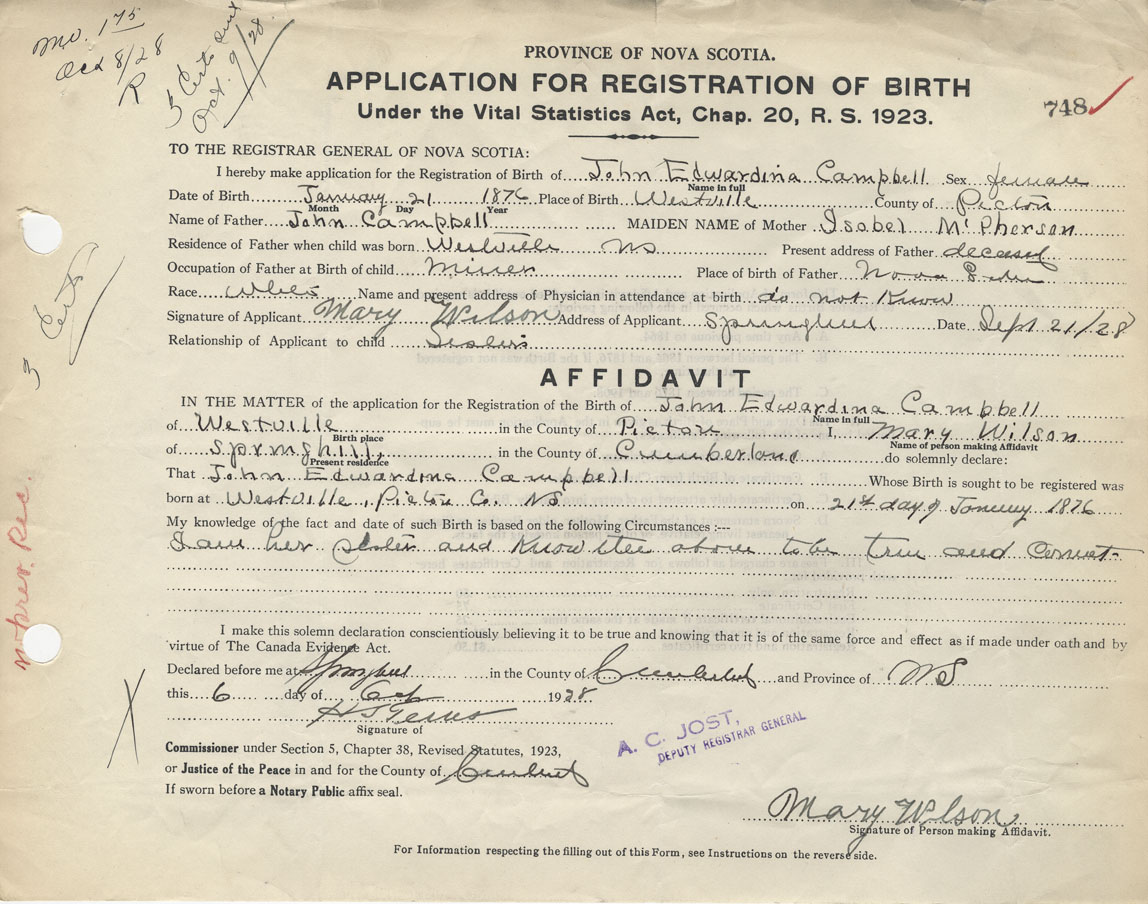 mo. 1 75
Oct 8/28
R
3 Certs sent
Oct. 9/28
PROVINCE OF NOVA SCOTIA.
APPLICATION FOR REGISTRATION OF BIRTH
Under the Vital Statistics Act, Chap. 20, R. S. 1923.
748
TO THE REGISTRAR GENERAL OF NOVA SCOTIA:
I hereby make application for the Registration of Birth of John Edwardina Campbell Sex female
Name in full
Date of Birth January 21 1876 Place of Birth Westville County of Pictou
Month Day Year
Name of Father John Campbell MAIDEN NAME of Mother Isobel McPherson
Residence of Father when child was born Westville NS Present address of Father deceased
Occupation of Father at Birth of child Miner Place of birth of Father Nova Scotia
Race White Name and present address of Physician in attendance at birth do not Know
Signature of Applicant Mary Wilson Address of Applicant Springhill Date Sept 21/28
Relationship of Applicant to child Sister
3 Certs
AFFIDAVIT
IN THE MATTER of the application for the Registration of the Birth of John Edwardina Campbell
Name in full
of Westville in the County of Pictou I, Mary Wilson
Birth place Name of person making Affidavit
of Springhill, in the County of Cumberland do solemnly declare:
Present residence
That John Edwardina Campbell Whose Birth is sought to be registered was
born at Westville, Pictou Co. NS on 21st day of January 1876
My knowledge of the fact and date of such Birth is based on the following Circumstances :--
I am her sister and Know the above to be true and Correct
no prev. Rec.
I make this solemn declaration conscientiously believing it to be true and knowing that it is of the same force and effect as if made under oath and by
virtue of The Canada Evidence Act.
Declared before me at Springhill in the County of Cumberland and Province of NS
this 6 day of Oct 1928
Signature of
Commissioner under Section 5, Chapter 38, Revised Statutes, 1923,
or Justice of the Peace in and for the County of Cumberland
If sworn before a Notary Public affix seal.
A. C. JOST,
DEPUTY REGISTRAR GENERAL
Mary Wilson
Signature of Person making Affidavit.
For Information respecting the filling out of this Form, see Instructions on the reverse side.